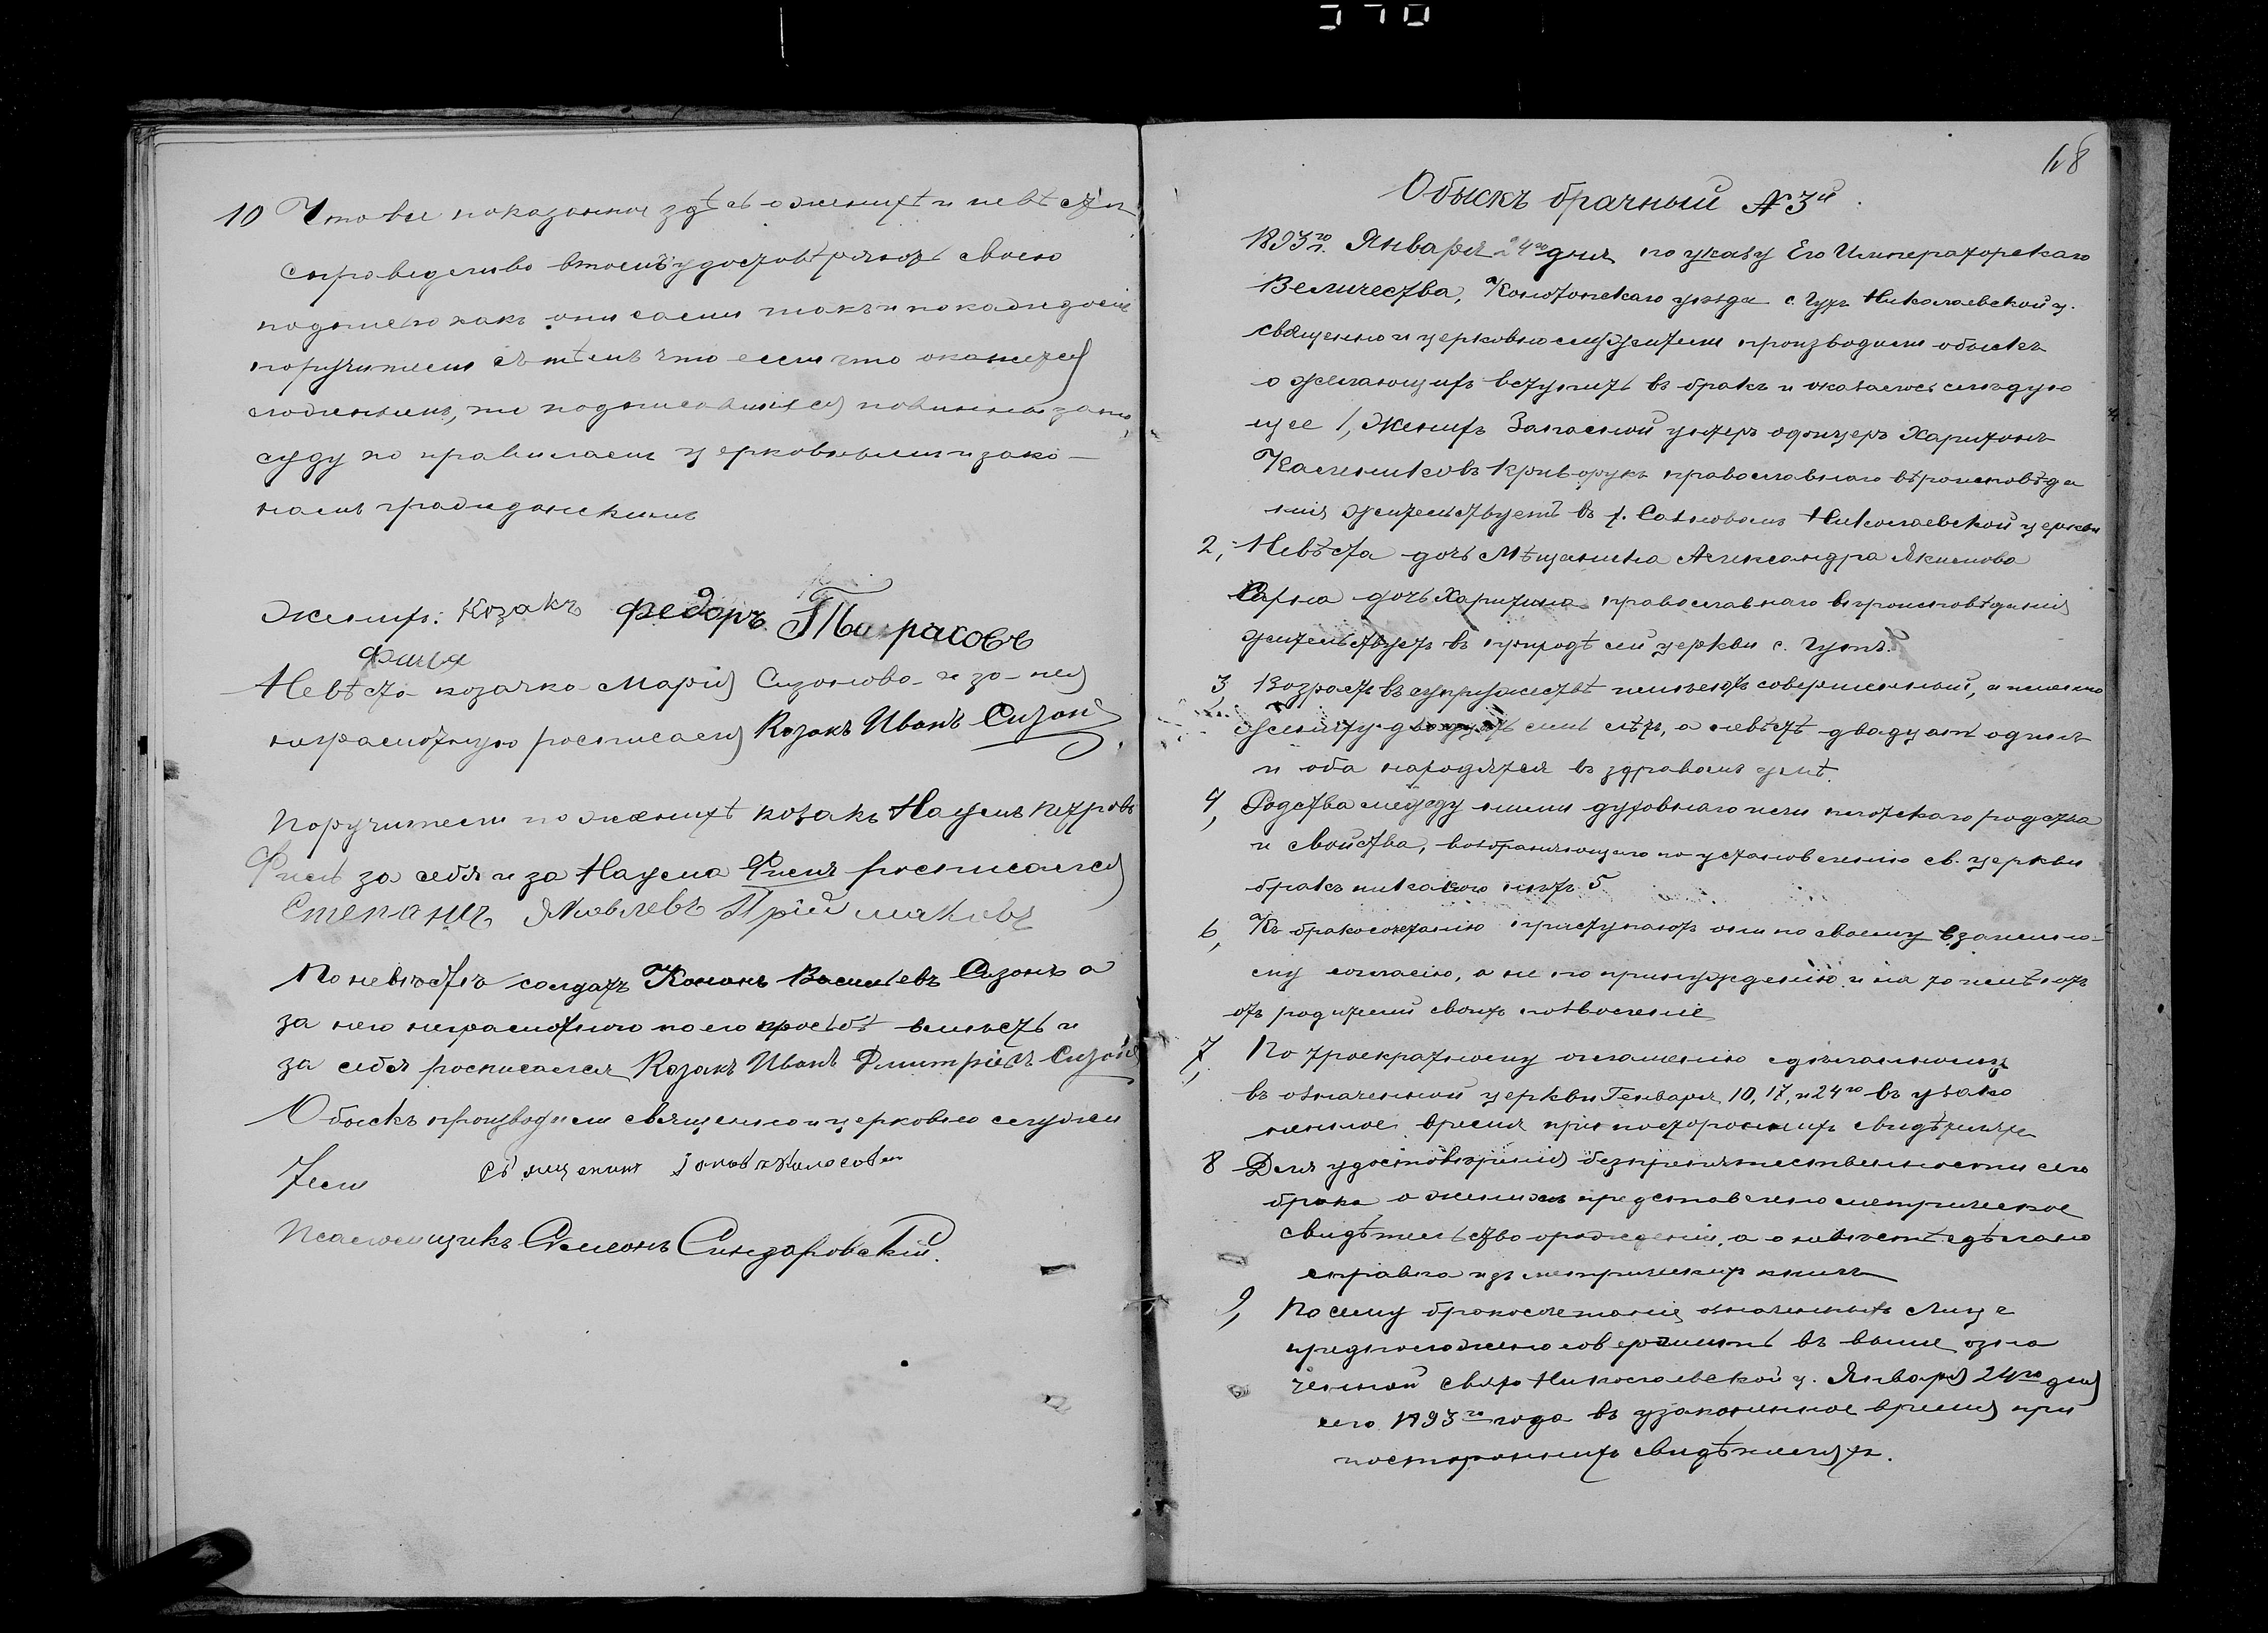 10 Что все показанное здѣсь о женихѣ и невѣстѣ
справедливо въ томъ удостовѣряютъ своею
подписью какъ они сами такъ и по каждомъ
поручители съ тѣмъ что если что окажется
ложнымъ, то подписавшіеся повинны за то
суду по правиламъ церковнымъ и зако-
намъ гражданскимъ
Женихъ: Козакъ Федоръ Тарасовъ
Фесь
Невѣста козачка Марія Сизонова и за нея
неграмотную росписался Козакъ Иванъ Сизонъ
Поручители по женихѣ козакъ Наумъ Петровъ
за себя и за Наума росписался
Степанъ Яковлевъ Пріймаковъ
По невѣстѣ солдатъ Кононъ Васильевъ Сизонъ а
за него неграмотного по его просьбѣ вмѣстѣ и
за себя росписался Козакъ Иванъ Дмитріевъ Сизонъ
Обыскъ производили священно и церковно служи
тели Священникъ
Псаломщикъ Симеонъ Синдаровскій.
68
Обыскъ брачный № 3й.
1893го г. Января 24го дня по указу Его Императорскаго
Величества, Конотопскаго уѣзда с. Гутъ Николаевской ц.
священно и церковно служители производили обыскъ
о желающихъ вступить въ бракъ и оказалось слѣдую
щее 1, Женихъ Запасной унтеръ офицеръ Харитонъ
Калениковъ Криворукъ православнаго вѣроисповѣда
нія жительствуетъ въ Николаевской церкви
2, Невѣста дочь Мѣщанина Александра Якимова
дочь Харитина православнаго вѣроисповѣданія
жительствуетъ въ приходѣ сей церкви с. Гутъ.
3, Возрастъ въ супружествѣ имѣютъ совершенный, а именно
жениху двадцать семь лѣтъ, а невѣстѣ двадцать одинъ
и оба находятся въ здравомъ умѣ.
4, Родства между ними духовнаго или плотскаго родства
и свойства, возбраняющаго по установленію св. церкви
бракъ никакого нѣтъ 5
6, Къ бракосочетанію приступаютъ они по своему взаимно-
му согласію, а не по принужденію и на то имѣютъ
отъ родителей своихъ позволеніе
7, По троекратному оглашенію сдѣланному
въ означенной церкви Генваря 10, 17, и 24го въ узако
ненное время при постороннихъ свидѣтеляхъ
8 Для удостовѣренія безпрепятственности сего
брака о женихѣ представлено метрическое
свидѣтельство о рожденіи, а о невѣстѣ сдѣлано
справка изъ метрическихъ книгъ
9, Посему бракосочетаніе означенныхъ лицъ
предположено совершить въ выше озна
ченной свято Николаевской ц. Января 24го дня
сего 1893го года въ узаконенное время при
постороннихъ свидѣтеляхъ.